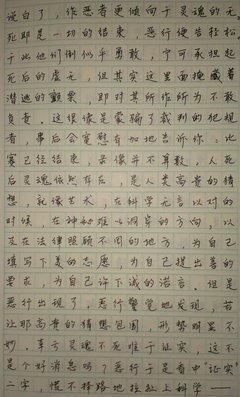 说白了，作恶者更倾向于灵魂的无
死即是一切的结束，恶行便告轻松
于此他们倒似乎勇敢，宁可承担起
死后的虚无，但其实这里面掩藏着
潜逃的颤栗，即对其所作所为不敢
负责。这很像是蒙骗了裁判的犯规
者，事后会宽慰有加地告诉你：比
赛已经结束，录像并不算数。人死
后灵魂依然存在，是人类高贵的猜
想，就像艺术，在科学无言以对的
时候，在神秘难以洞穿的方向，以
及在法律照顾不周的地方，为自己
填写下美的志愿，为自己提出善的
要求，为自己许下诚的诺言。但是
恶行出现了，恶行警觉地发现，若
让那高贵的猜想包围，形势明显不
妙，幸亏灵魂不死难于证实，这不
是个好消息吗？恶行于是看中“证实”
二字，慌不择路地扯上科学——